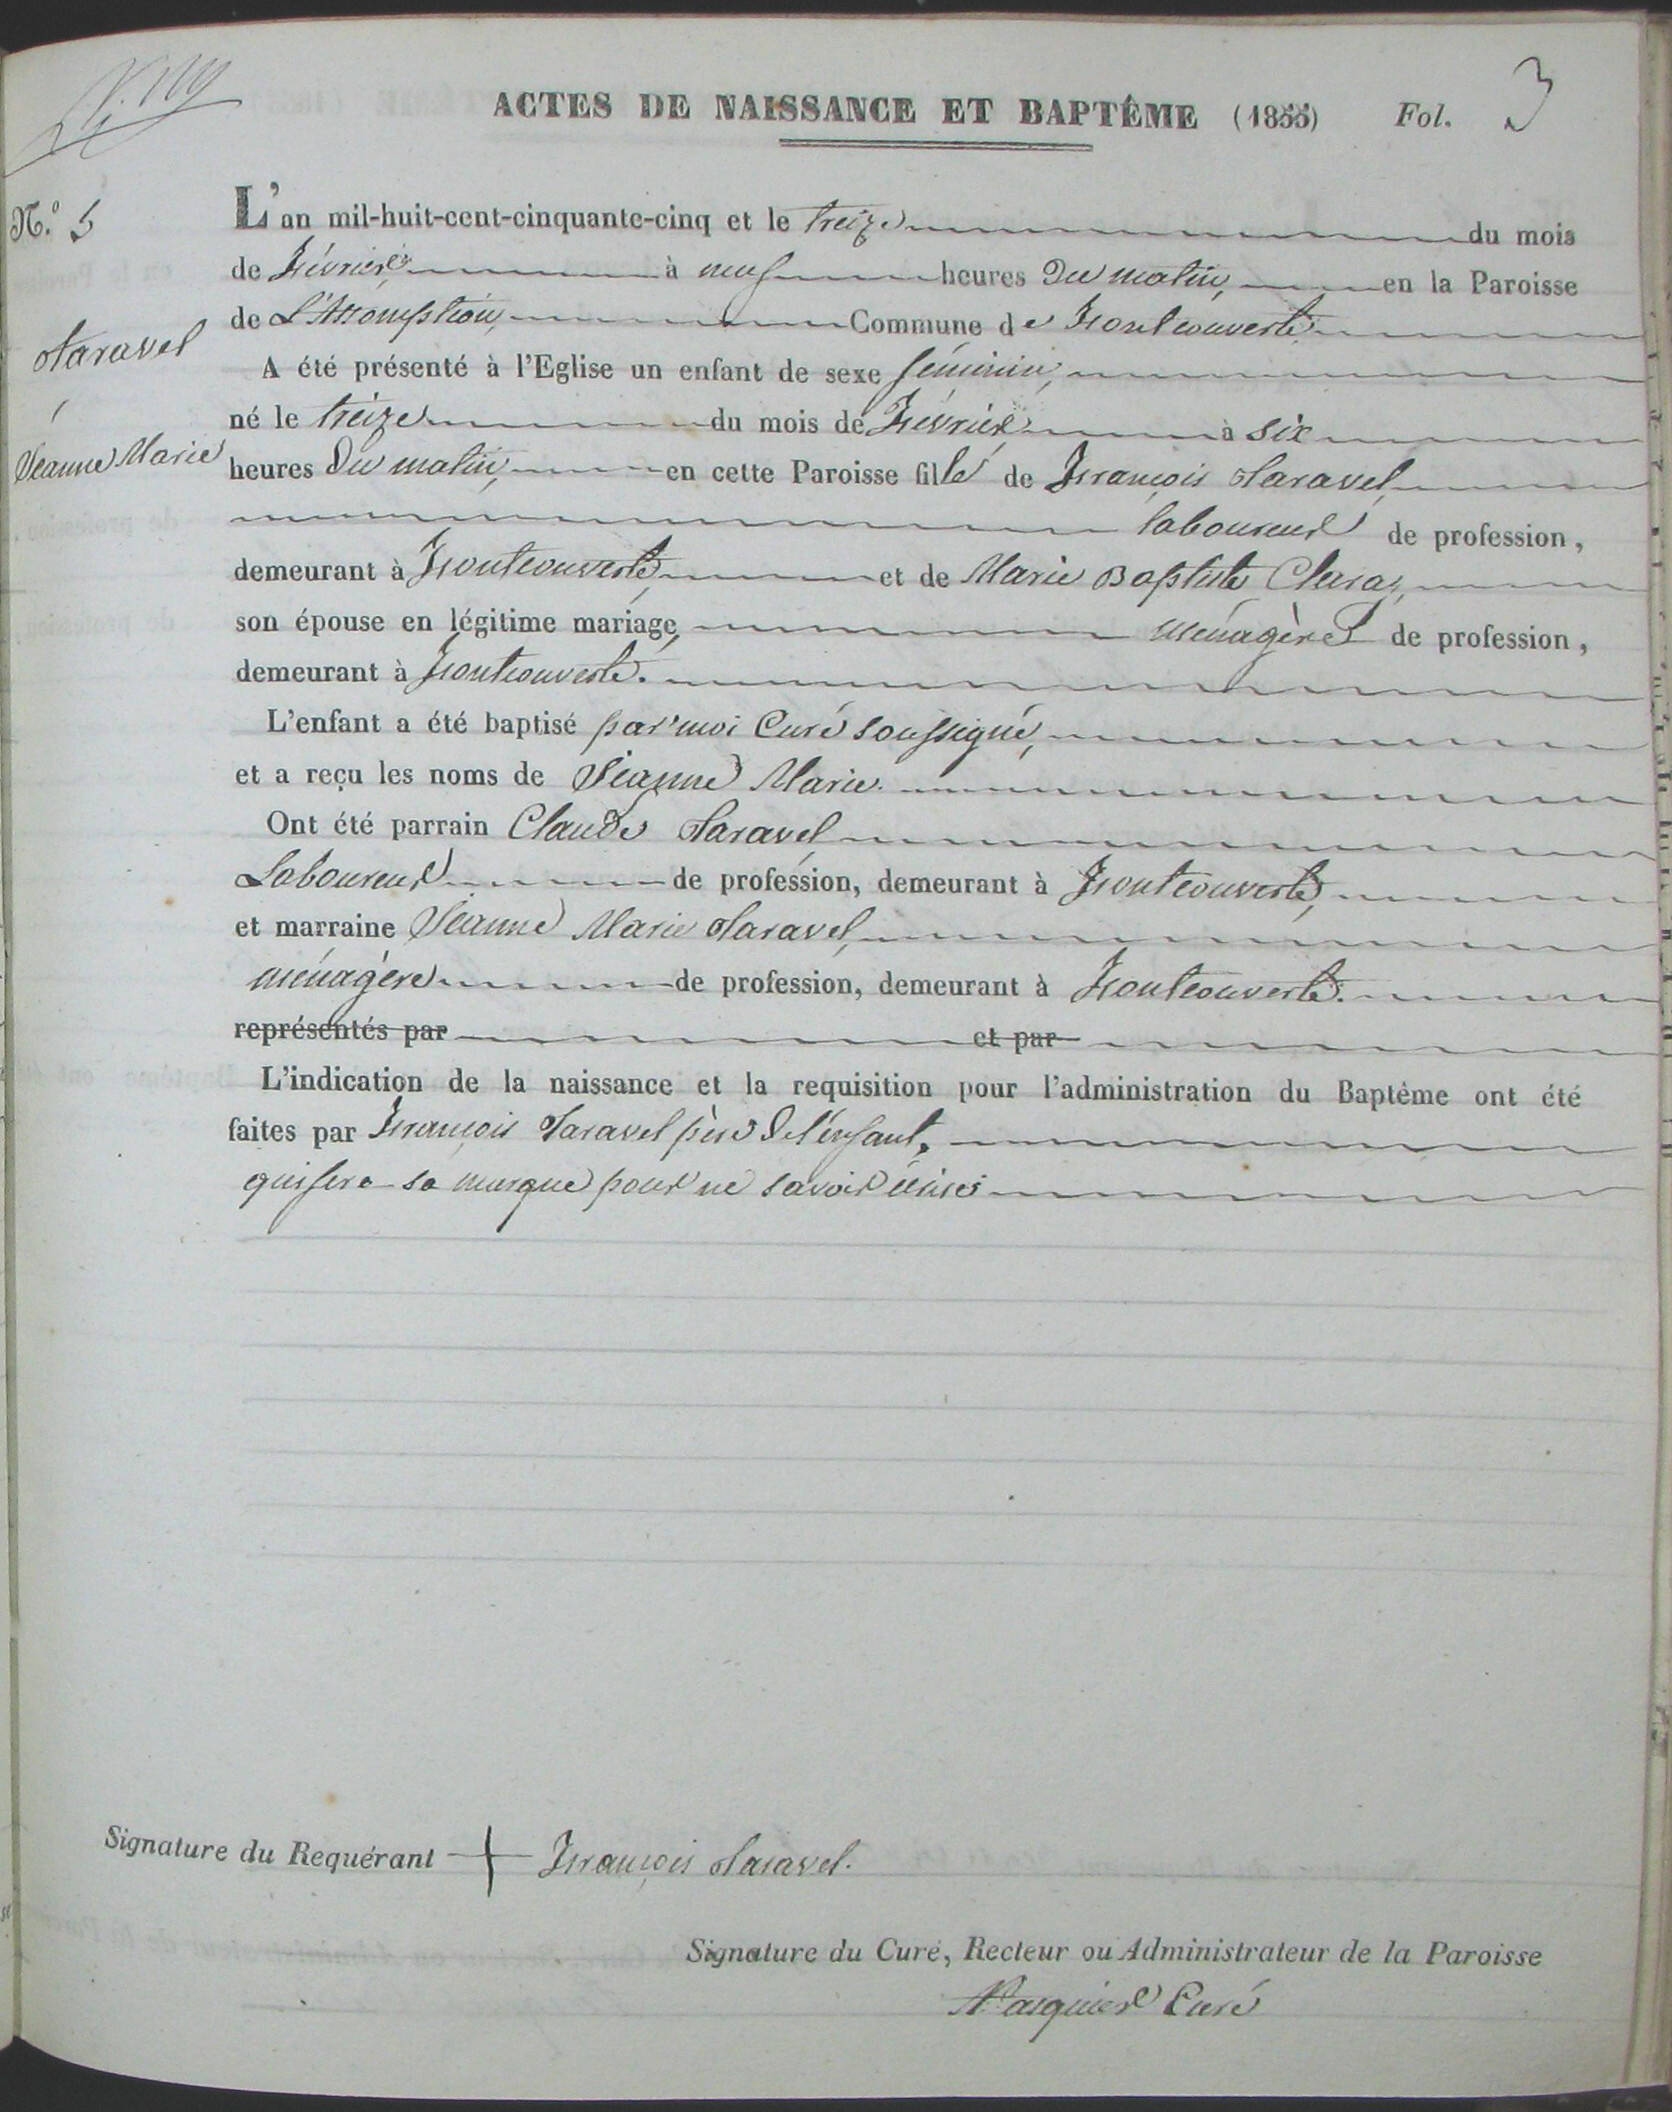 ACTES DE NAISSANCE ET BAPTÊME (1855) Fol. 3
N.º 5
Taravel
Jeanne Marie
L'an mil-huit-cent-cinquante-cinq et le treize du mois
de Février, à neuf heures Du matin, en la Paroisse
de L'Assomption, Commune de Fontcouverte.
A été présenté à l'Eglise un enfant de sexe féminin,
né le treize du mois de Février à six
heures Du matin, en cette Paroisse fille de François Taravel,
laboureur de profession,
demeurant à Fontcouverte, et de Marie Baptiste Claraz,
son épouse en légitime mariage, ménagère de profession,
demeurant à Fontcouverte.
L'enfant a été baptisé par moi Curé soussigné,
et a reçu les noms de Jeanne Marie.
Ont été parrain Claude Taravel
Laboureur de profession, demeurant à Fontcouverte,
et marraine Jeanne Marie Taravel,
ménagère de profession, demeurant à Fontcouverte.
représentés par et par
L'indication de la naissance et la requisition pour l'administration du Baptême ont été
faites par François Taravel père de l'enfant,
qui fera sa marque pour ne savoir écrire
Signature du Requérant + François Taravel.
Signature du Curé, Recteur ou Administrateur de la Paroisse
Curé